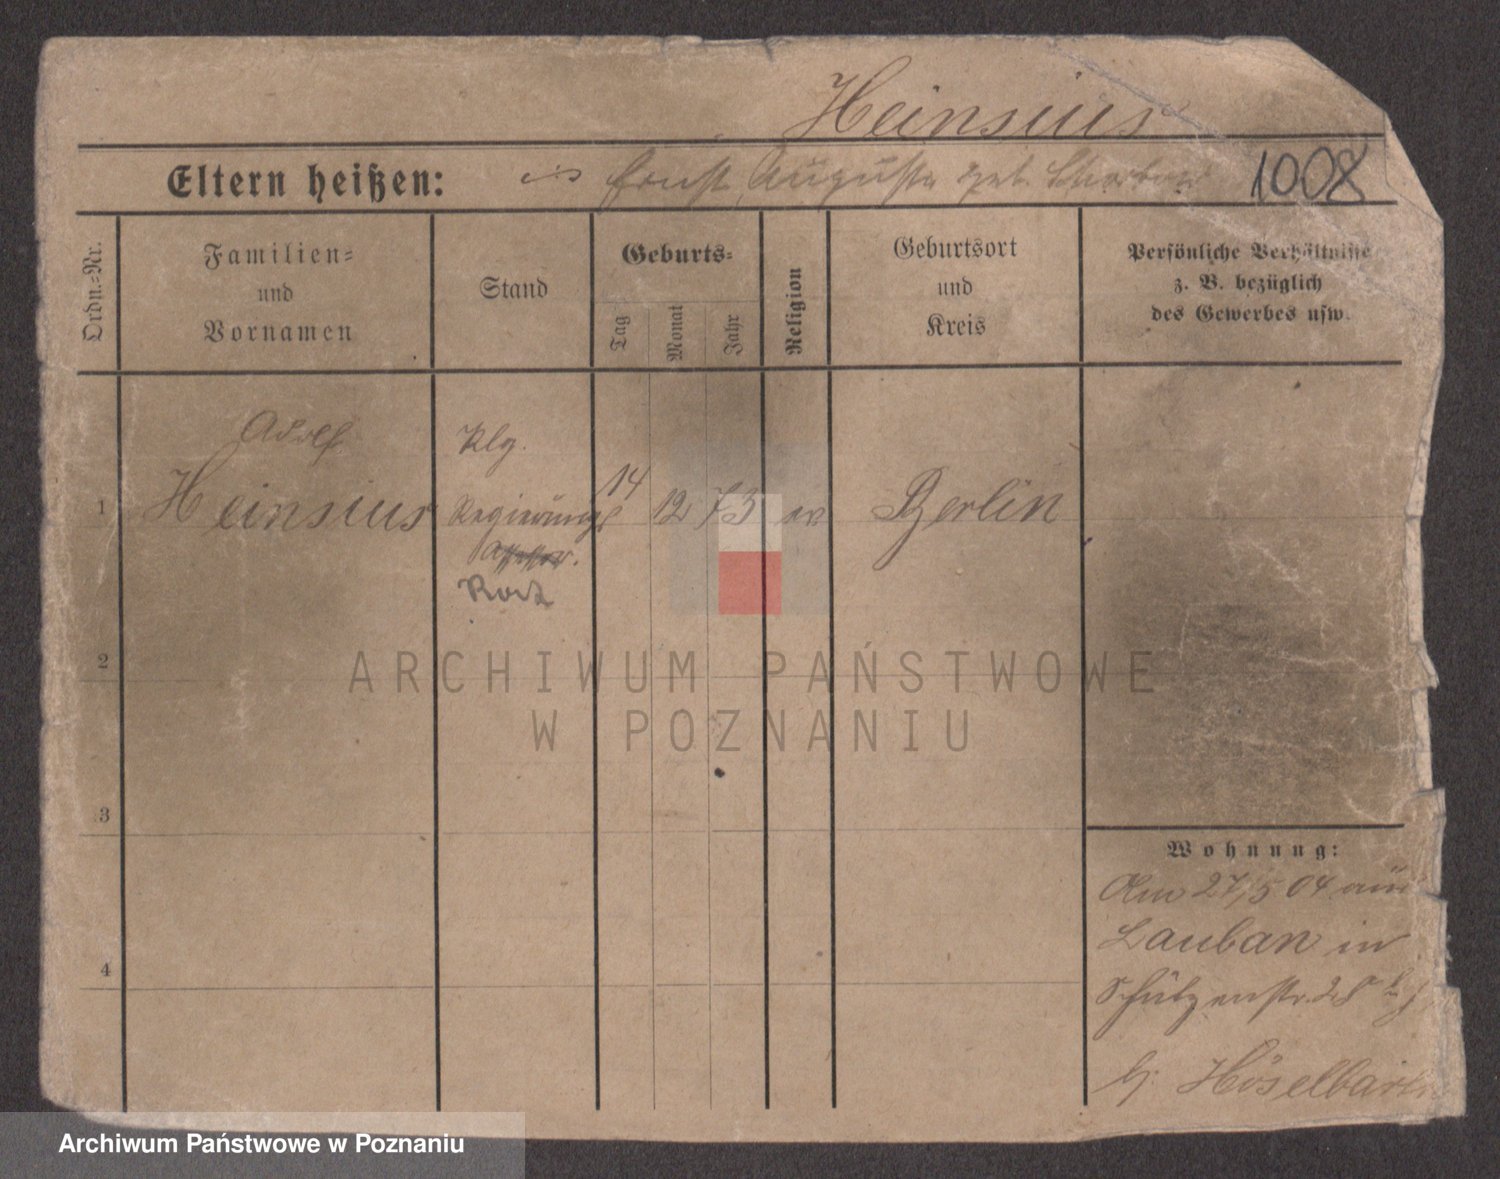 Heinsius
Eltern heißen: Ernst, Auguste geb. 1008
Ordn.-Nr.
Familien-
und
Vornamen
Stand
Geburts-
Tag
Monat
Jahr
Religion
Geburtsort
und
Kreis
Persönliche Verhältnisse
z. B. bezüglich
des Gewerbes usw.
Adolf Klg.
1 Heinsius Regierungs 14 12 73 ev Berlin
Assessor.
Rat
2
3
4
Wohnung:
Am 27/5 04 aus
Lauban in
Schützenstr. 28
b. Höselbarth
ARCHIWUM PAŃSTWOWE
W POZNANIU
Archiwum Państwowe w Poznaniu